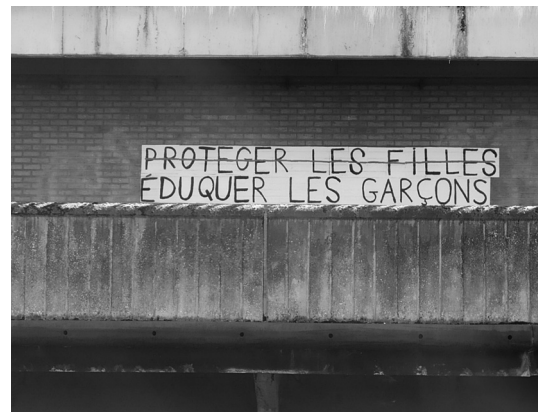 PROTEGER LES FiLLES
ÉDUQUER LES GARÇONS